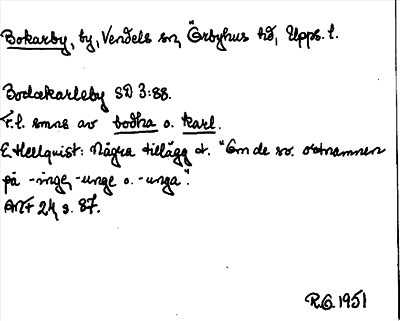 Bokarby, by, Vendels sn, Örbyhus hd, Upps. l.
Bodækarleby SD 3:88.
F.l. smns av bodha o. karl.
E. Hellquist: Några tillägg t. "Om de sv. ortnamnen
på -inge, -unge o. -unga".
ANF 24, s. 87.
R.G. 1951